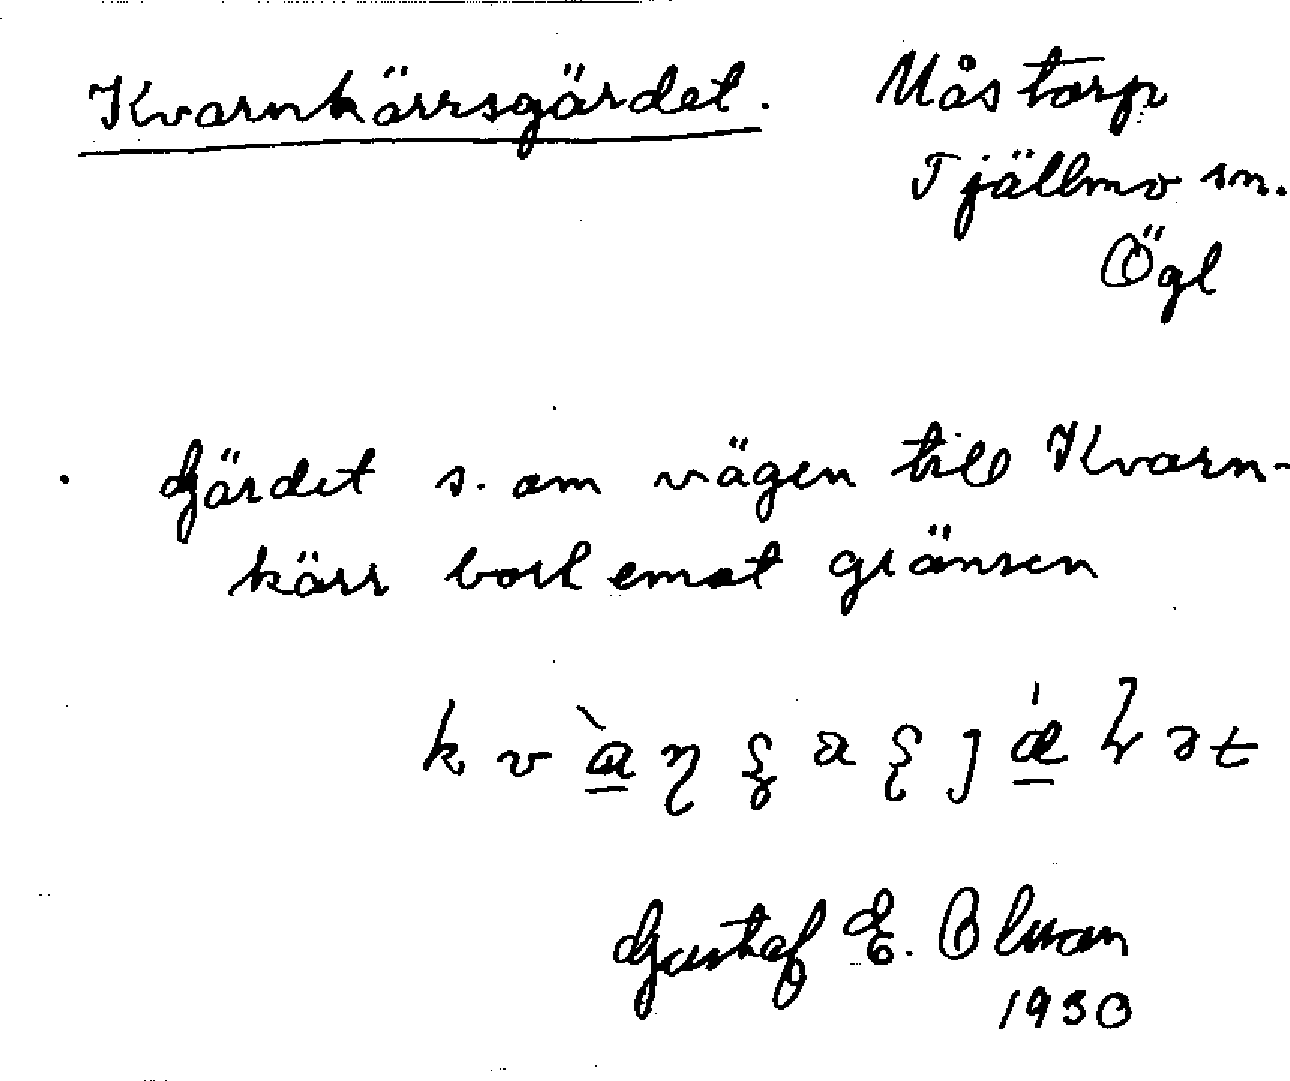 Kvarnkärrsgärdet. Måstorp
Tjällmo sn.
Ögl
Gärdet s. om vägen till Kvarn-
kärr bort emot gränsen
Gustaf E. Olman
1930